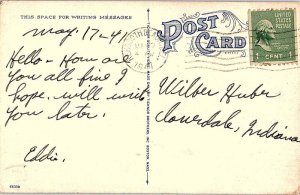 THIS SPACE FOR WRITING MESSAGES
POST
CARD
UNITED STATES
POSTAGE
1 CENT 1
May. 17-41
Hello - How are
you all fine I
hope. will write
you later.
Eddie.
Wilber Huber
Cloverdale, Indiana